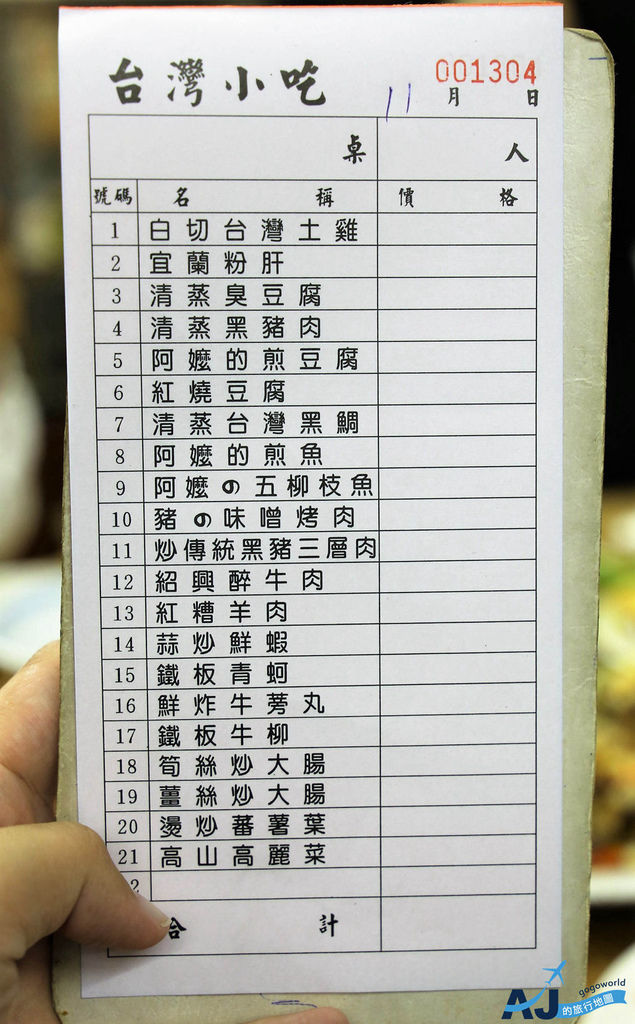 台灣小吃
001304
11月 日
桌 人
號碼 名稱 價格
1 白切台灣土雞
2 宜蘭粉肝
3 清蒸臭豆腐
4 清蒸黑豬肉
5 阿嬤的煎豆腐
6 紅燒豆腐
7 清蒸台灣黑鯛
8 阿嬤的煎魚
9 阿嬤の五柳枝魚
10 豬の味噌烤肉
11 炒傳統黑豬三層肉
12 紹興醉牛肉
13 紅糟羊肉
14 蒜炒鮮蝦
15 鐵板青蚵
16 鮮炸牛蒡丸
17 鐵板牛柳
18 筍絲炒大腸
19 薑絲炒大腸
20 燙炒蕃薯葉
21 高山高麗菜
2
合計
gogoworld
AJ的旅行地圖